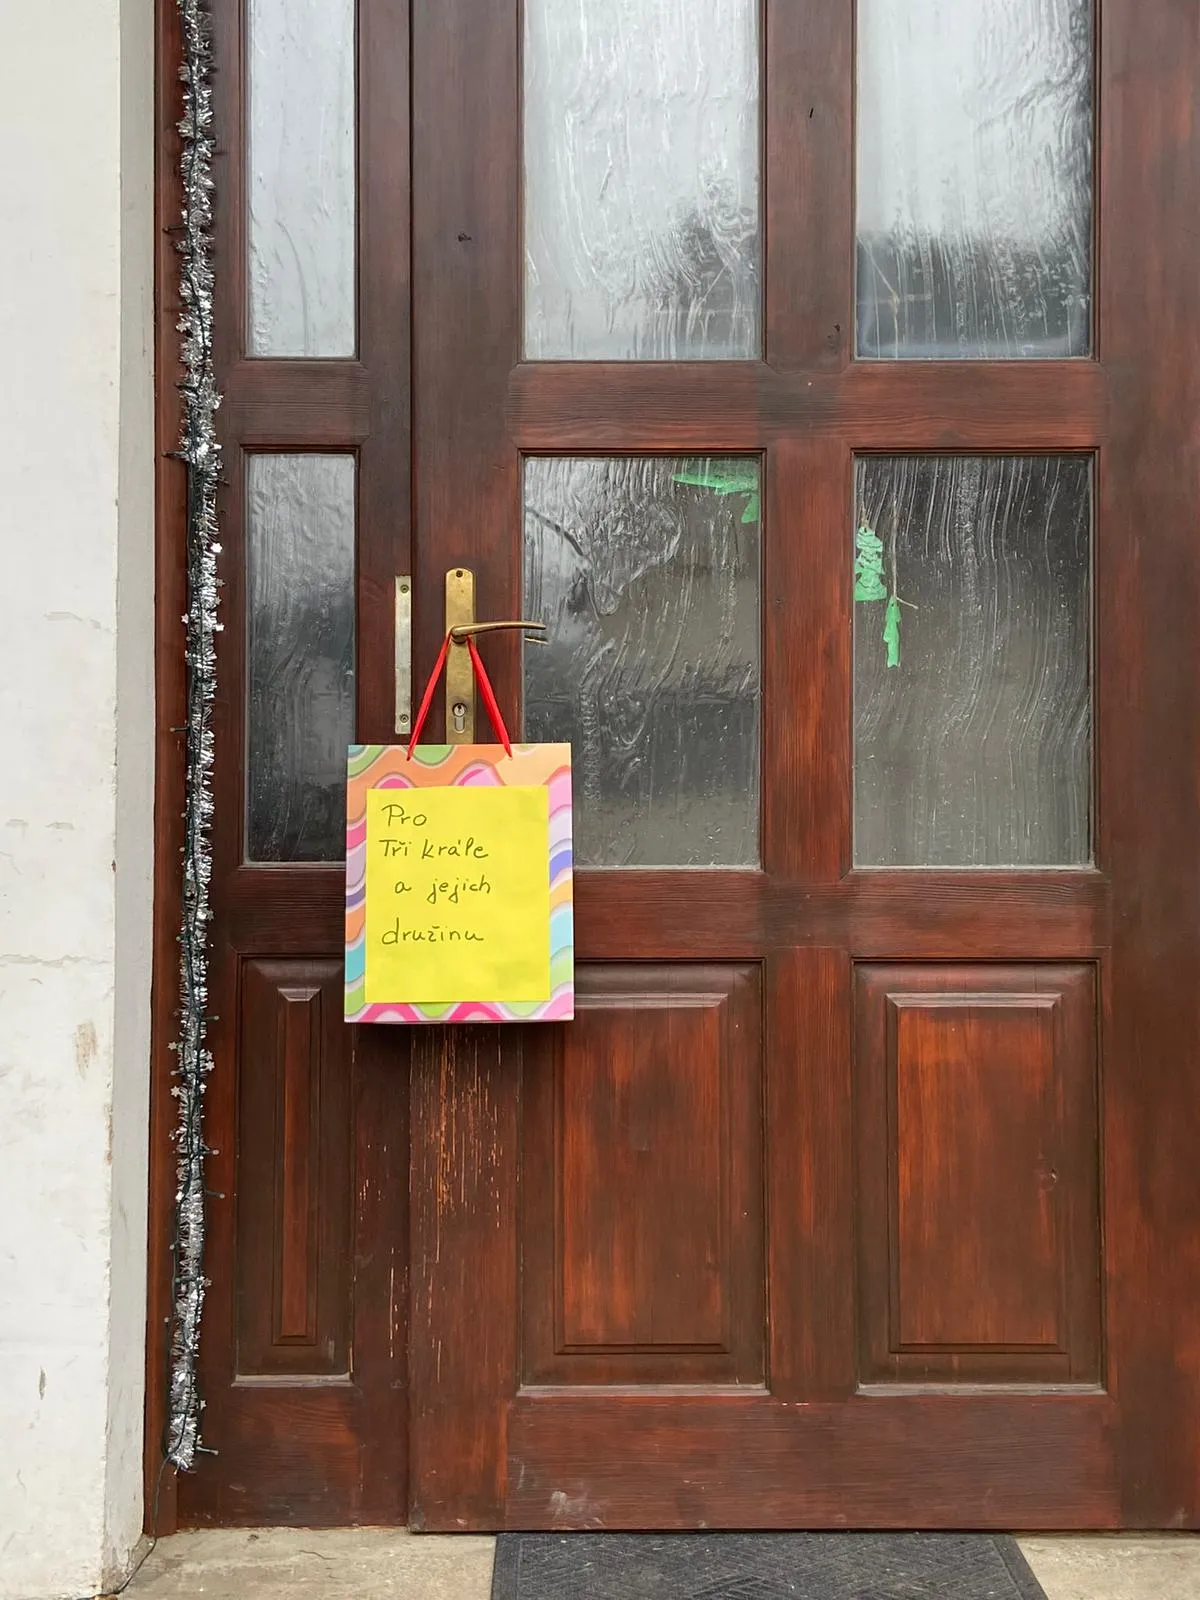 Pro
Tři krále
a jejich
družinu